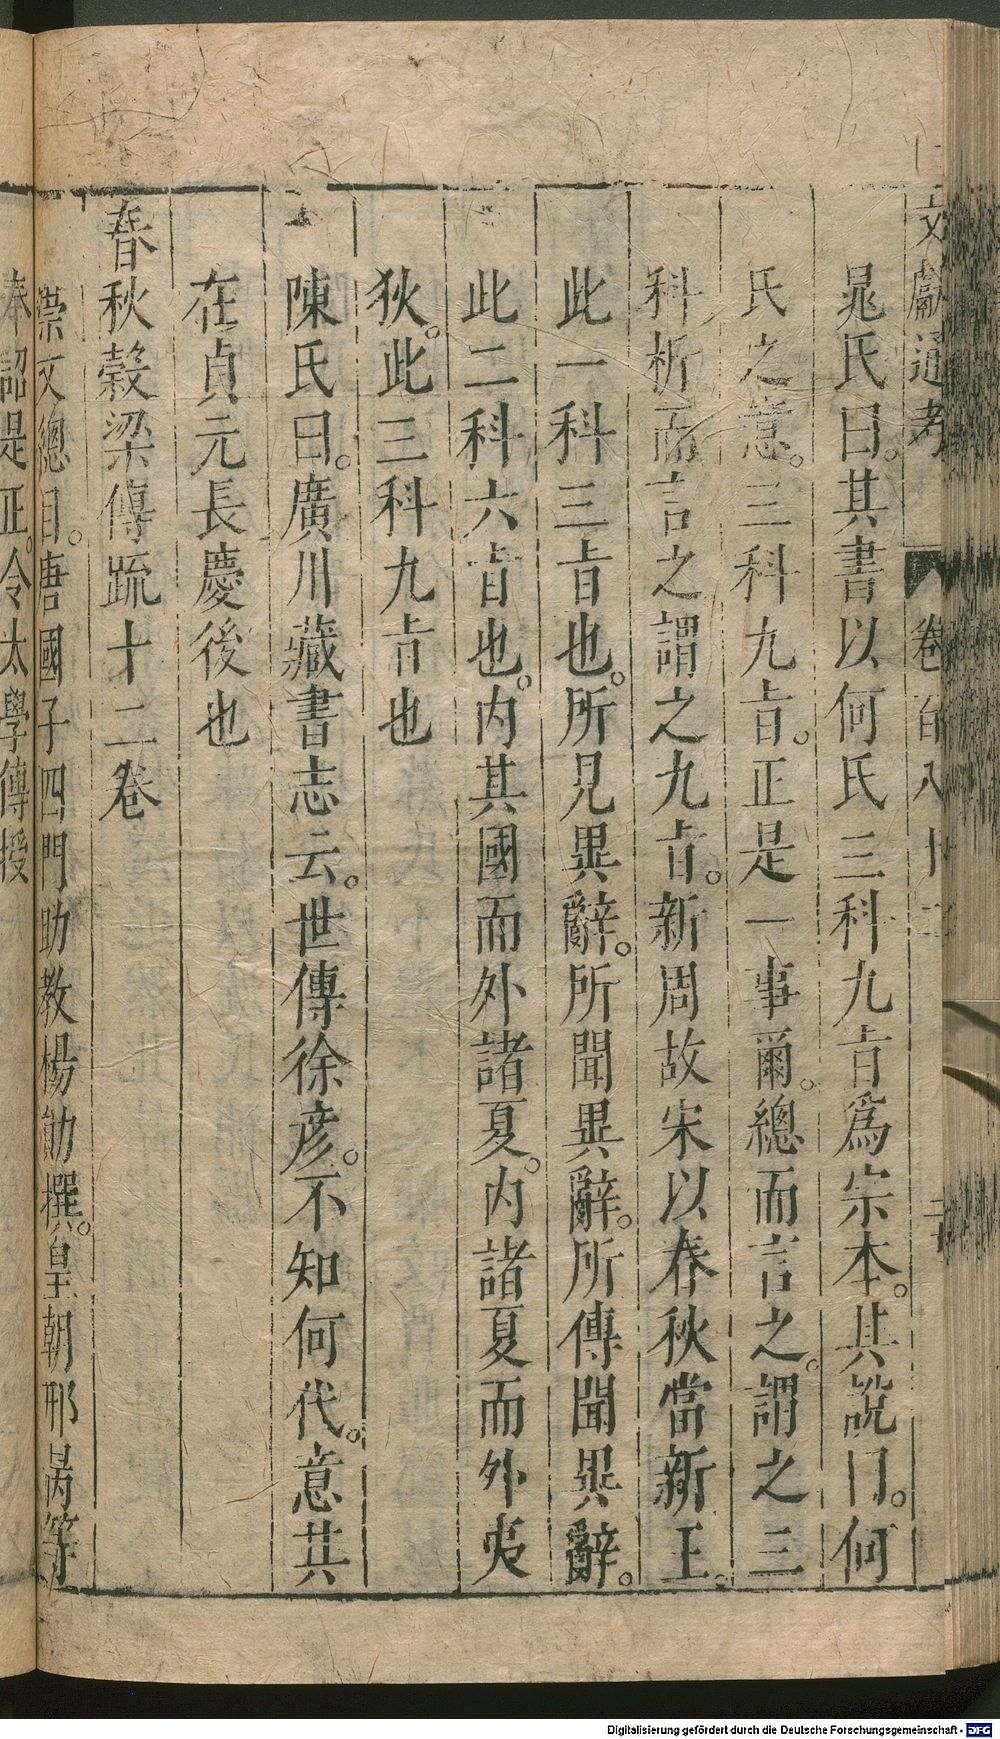 文獻通考 卷百八十二 二十
晁氏曰。其書以何氏三科九㫖爲宗本。其說曰。何
氏之意。三科九㫖。正是一事爾。總而言之。謂之三
科析而言之謂之九㫖。新周故宋以春秋當新王。
此一科三㫖也。所見異辭。所聞異辭。所傳聞異辭。
此二科六㫖也。内其國而外諸夏。内諸夏而外夷
狄。此三科九㫖也
陳氏曰。廣川藏書志云。世傳徐彦。不知何代。意其
在貞元長慶後也
春秋穀梁傳疏十二卷
崇文總目。唐國子四門助教楊勛撰。皇朝邢昺等
奉詔是正。令太學傳授
Digitalisierung gefördert durch die Deutsche Forschungsgemeinschaft - DFG